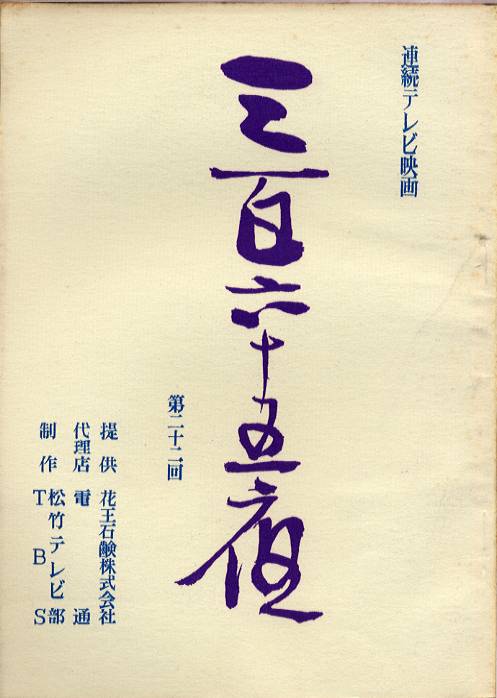 連続テレビ映画
三百六十五夜
第二十二回
提供 花王石鹸株式会社
代理店 電通
制作 松竹テレビ部
TBS